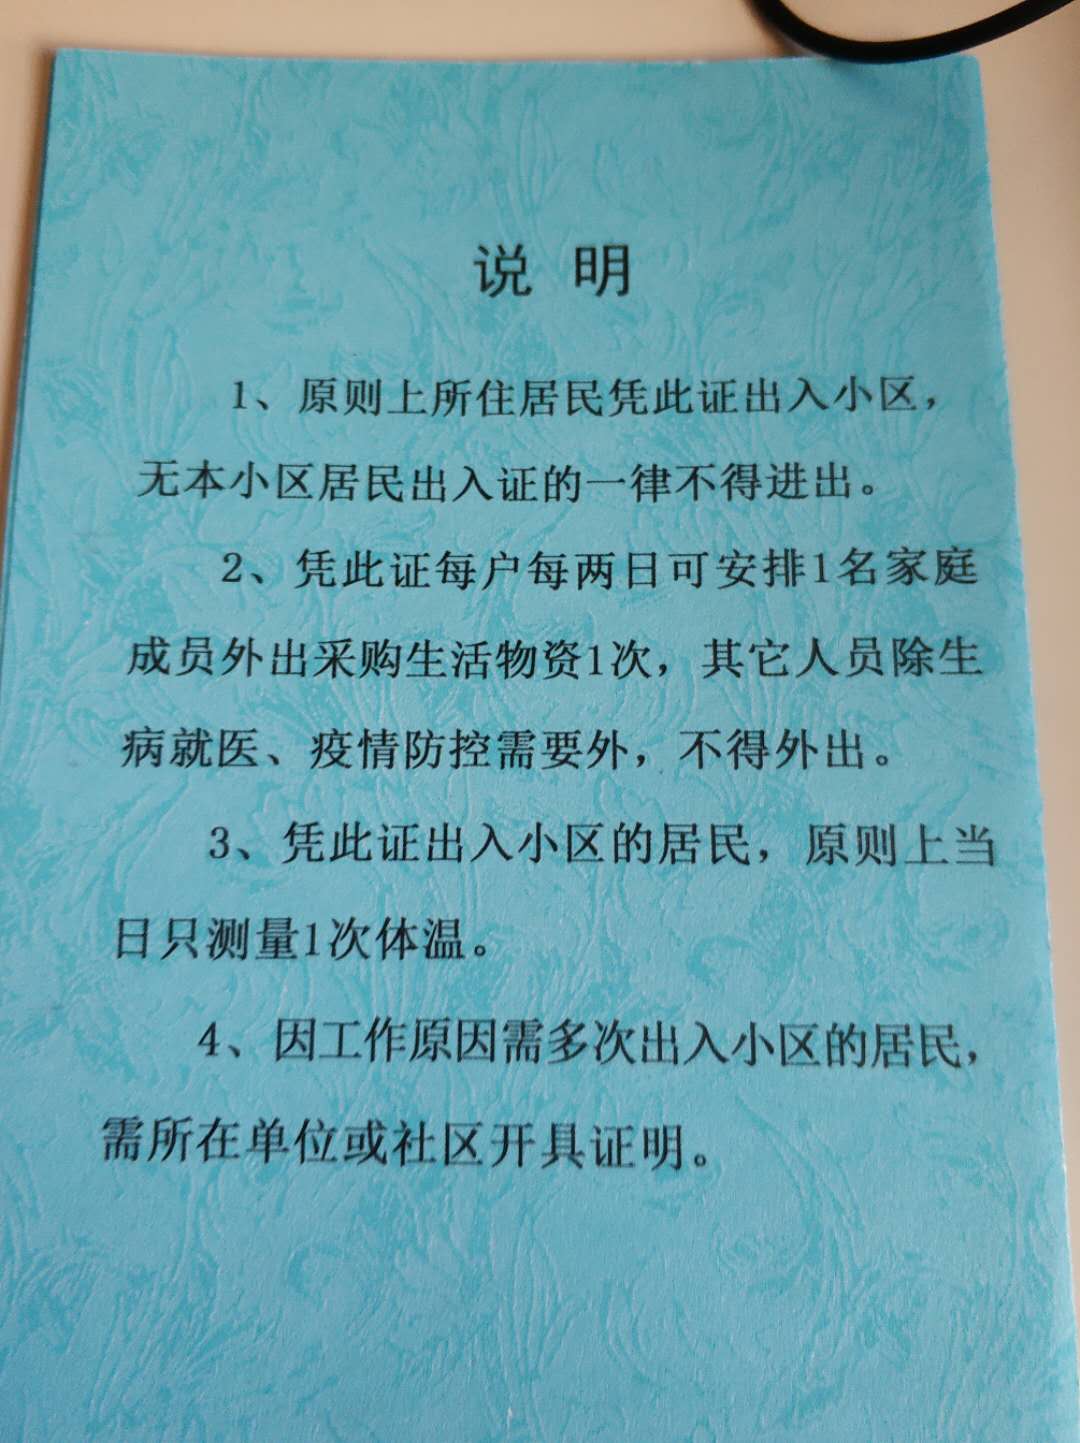 说 明
1、原则上所住居民凭此证出入小区，
无本小区居民出入证的一律不得进出。
2、凭此证每户每两日可安排1名家庭
成员外出采购生活物资1次，其它人员除生
病就医、疫情防控需要外，不得外出。
3、凭此证出入小区的居民，原则上当
日只测量1次体温。
4、因工作原因需多次出入小区的居民，
需所在单位或社区开具证明。